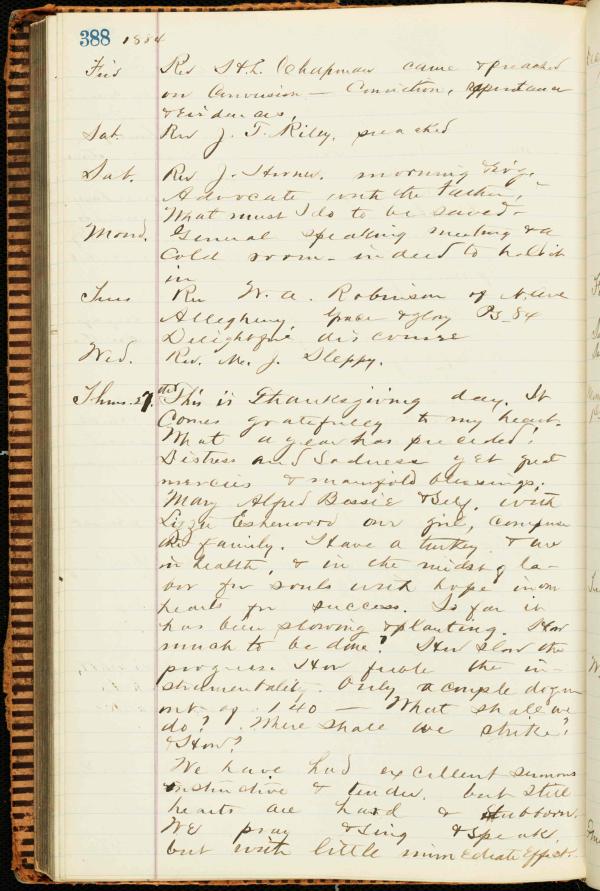 388 1884
Frid Rev S H L. Chapman came & preached
on Conversion — Conviction, Repentance
& Evidences,
Sat. Rev J. T. Riley. preached
Sab. Rev J. Horner. morning & Ev'g.
Advocate with the Father,"
What must I do to be saved—
Mond. General speaking meeting & a
Cold room — indeed to hold it
in
Tues Rev W. A. Robinson of
Allegheny, Grace & Glory Ps_84
Delightful discourse
Wed. Rev. M. J. Sleppy.
Thurs. 27.th This is Thanksgiving day. It
Comes gratefully to my heart.
What a year has preceded!
Distress and Sadness yet great
mercies & manifold blessings,
Mary Alfred Bessie & Self. with
Lizzie Eshenwood our girl, compose
the family. I have a turkey. & are
in health, & in the midst of la-
bor for souls with hope in our
hearts for success. So far it
has been plowing & planting. How
much to be done? How slow the
progress. How feeble the in-
strumentality. Only a couple dozen
out of 140 — What shall we
do? Where shall we strike?
& How?
We have had excellent sermons
instructive & tender. but still
hearts are hard & stubborn.
We pray & sing & speak
but with little immediate Effect.